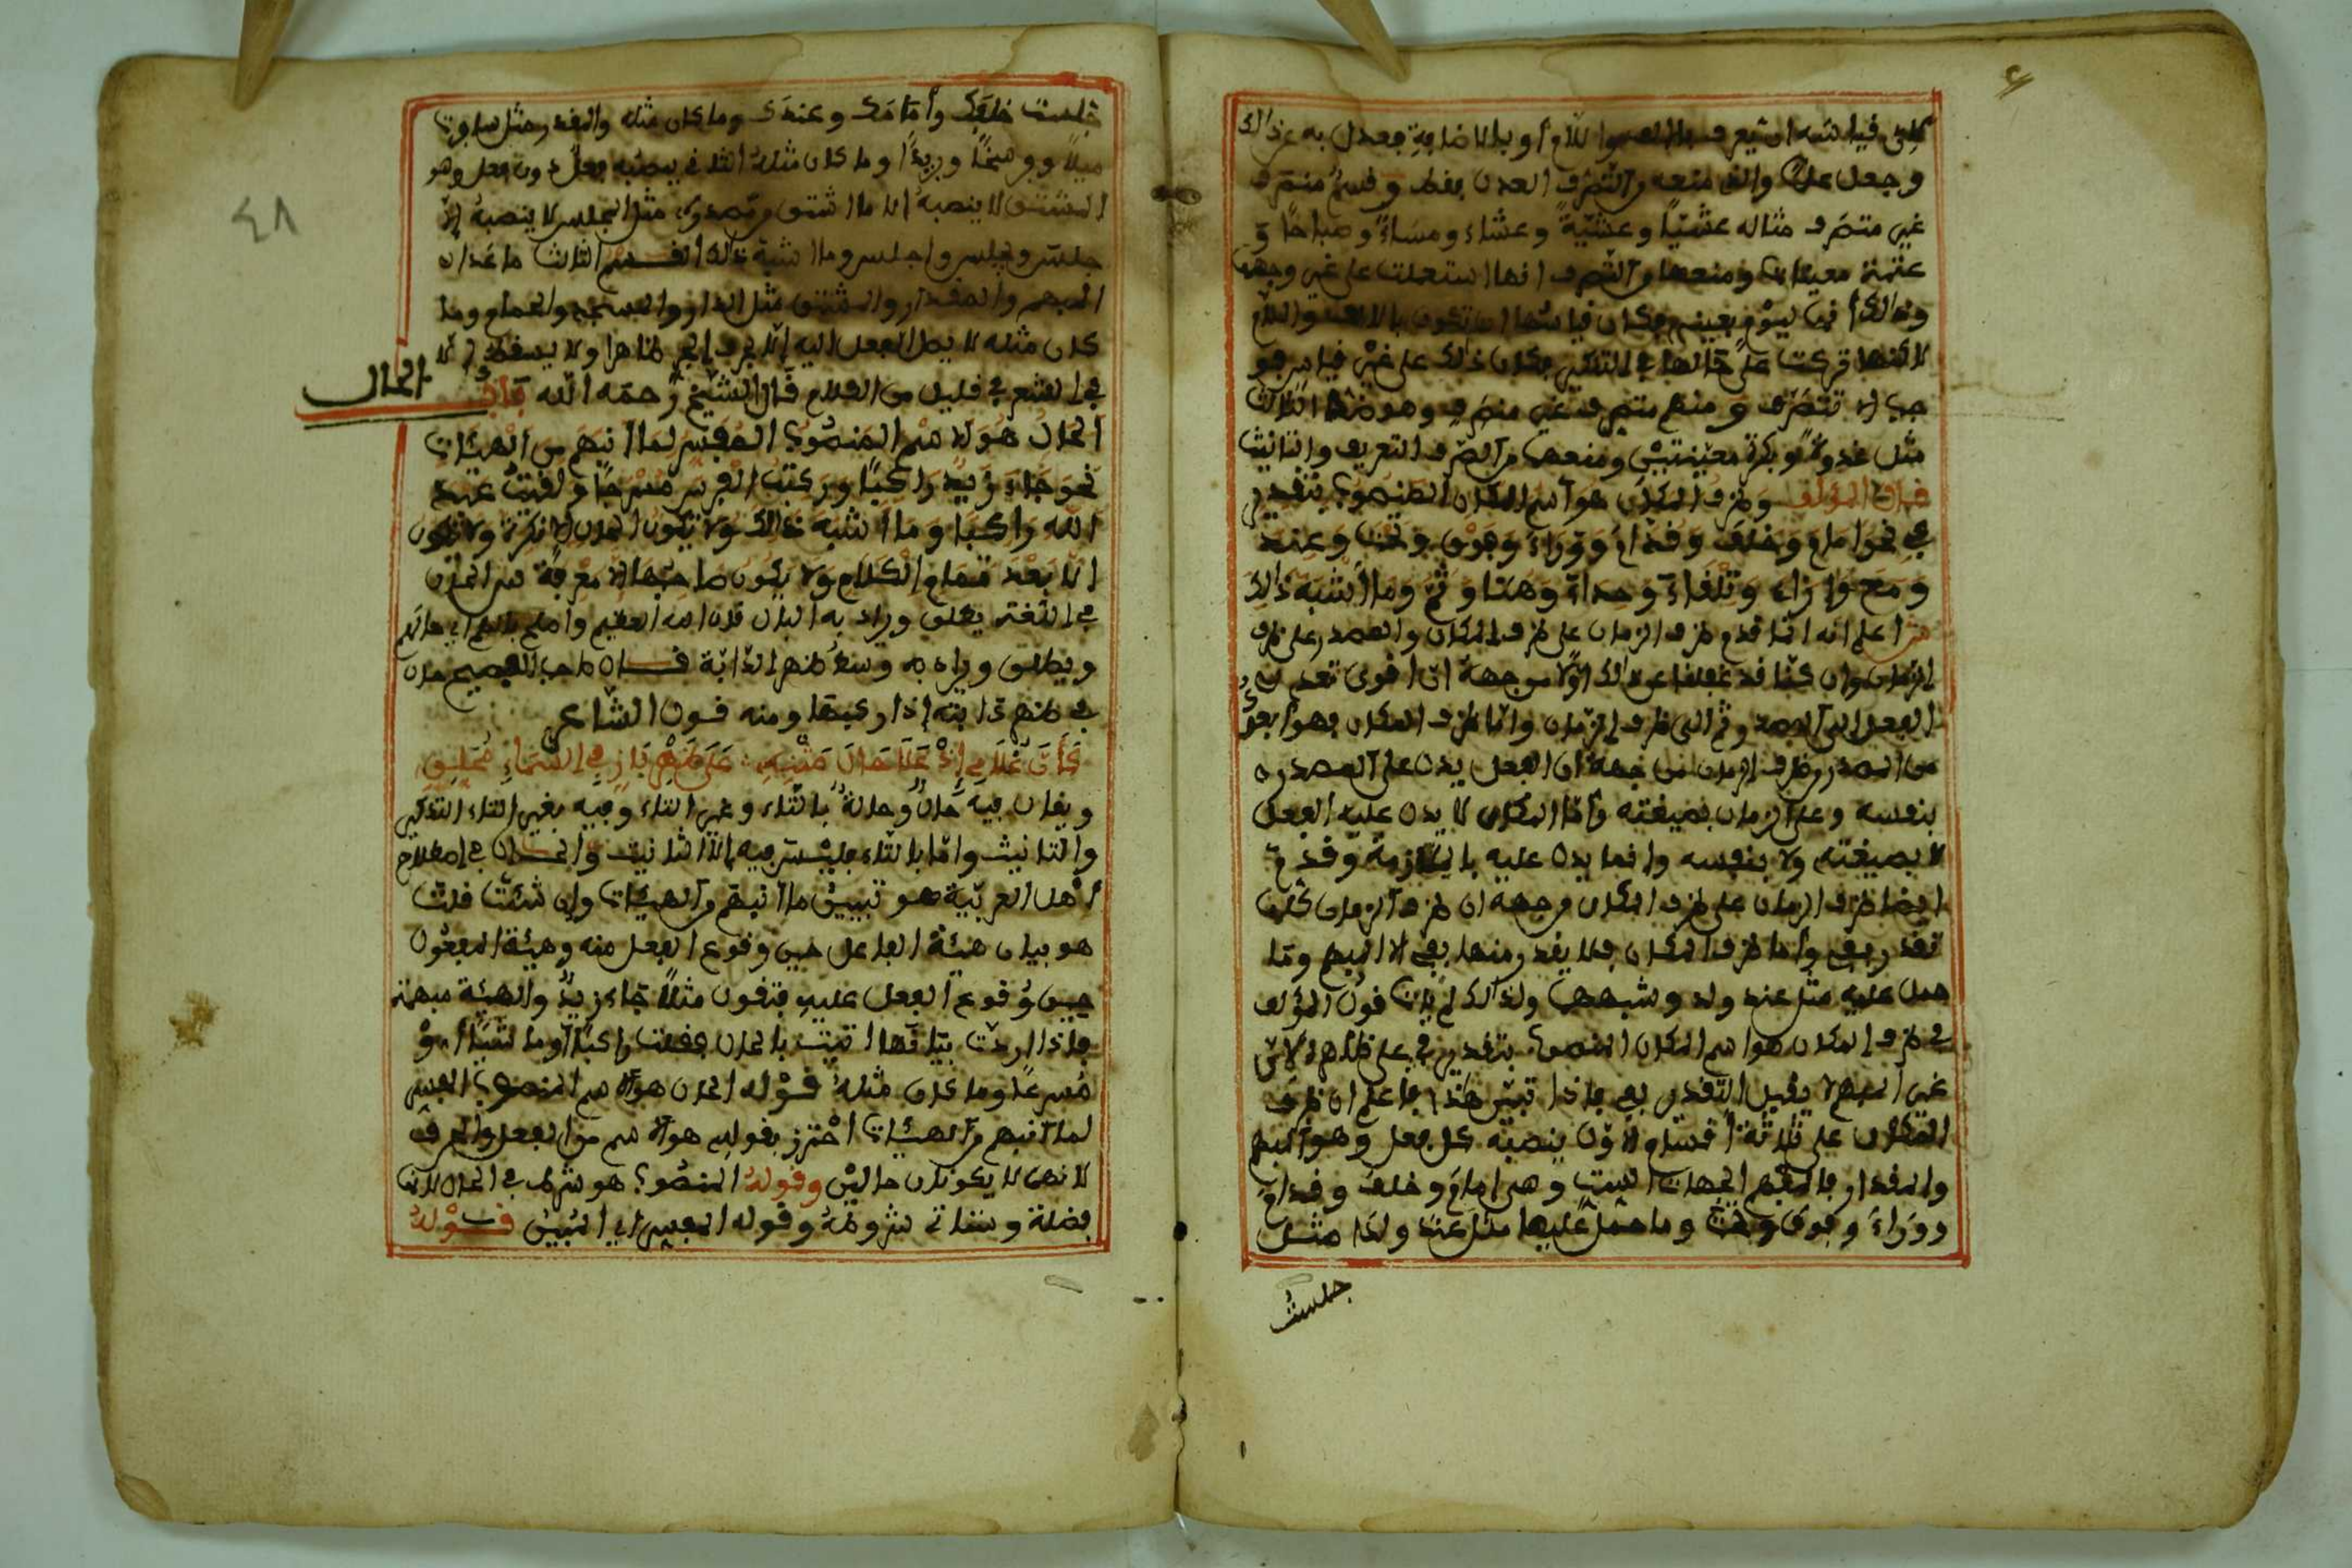 وجعل علما والذي منعه من التصرف العدل فقط وقسم منصرف
غير متصرف مثاله عشيا وعشية وعشاء ومساء وصباحا و
لاكنها تركت على حالها في التنكير فكان ذلك على غير قياس فهو
مثل غدوة وبكرة معينتين ومنعهما من الصرف التعريف والتانيث
قال المؤلف وظرف المكان هو اسم المكان المنصوب بتقدير
في نحو امام وخلف وقدام ووراء وفوق وتحت وعند
ومع وازاء وتلقاء وحذاء وهنا وثم وما اشبه ذالك
ش اعلم انه انما قدم ظرف الزمان على ظرف المكان والمصدر على ظرف
من المصدر وظرف الزمان من جهة ان الفعل يدل على المصدر
بنفسه وعلى الزمان بصيغته واما المكان لا يدل عليه الفعل
لا بصيغته ولا بنفسه وانما يدل عليه بالملازمة وقدم
ايضا ظرف الزمان على ظرف المكان من جهة ان ظرف الزمان كلها
تقدر بفي واما ظرف المكان فلا يقدر منها بفي الا المبهم وما
حمل عليه مثل عند ولد وشبههما ولذالك لم يات قول المؤلف
في ظرف المكان هو اسم المكان المنصوب بتقدير في على ظاهره لان
غير المبهم لا يقبل التقدير بفي فاذا تبين هذا فاعلم ان ظرف
المكان على ثلاثة أقسام الاول ينصبه كل فعل وهو المبهم
والمقدار فالمبهم الجهات الست وهي امام وخلف وقدام
ووراء وفوق وتحت وما حمل عليها مثل عند ولدا مثل
جلست
٤٨
جلست خلفك وأمامك وعندك وما كان مثله والمقدر مثل سارت
ميلا وفرسخا وبريدا وما كان مثله الثاني ينصبه فعل دون فعل وهو
المشتق لا ينصبه الا ما اشتق من مصدره مثل المجلس لا ينصبه إلا
جلس ويجلس واجلس وما اشبه ذلك القسم الثالث ما عدا
المبهم والمقدار والمشتق مثل الدار والمسجد والحمام وما
كان مثله لا يصل الفعل اليه إلا بحرف الجر ظاهرا ولا يسقط الا
في الشعر في قليل من الكلام قال الشيخ رحمه الله باب
الحال
الحال هو الاسم المنصوب المفسر لما انبهم من الهيئات
نحو جاء زيد راكبا وركبت الفرس مسرجا ولقيت عبد
الله راكبا وما اشبه ذالك ولا يكون الحال إلا نكرة ولا يكون
الا بعد تمام الكلام ولا يكون صاحبها إلا معرفة ش الحال
ويطلق ويراد به وسط ظهر الدابة قال صاحب الفصيح حال
في ظهر دابته إذا ركبها ومنه قول الشاعر
كأن غلامي إذ علا حال متنه ∴ على ظهر باز في السماء محلق
ويقال فيه حال وحالة بالتاء وغير التاء وفيه بغير التاء التذكير
والتانيث واما بالتاء فليس فيه إلا التانيث والحال في إصطلاح
أهل العربية هو تبيين ما انبهم من الهيئات وإن شئت قلت
هو بيان هيئة الفاعل حين وقوع الفعل منه وهيئة المفعول
حين وقوع الفعل عليه فتقول مثلا جاء زيد والهيئة مبهمة
فاذا اردت بيانها اتيت بالحال فقلت راكبا أو ماشيا أو
مسرعا وما كان مثله قوله الحال هو الاسم المنصوب المفسر
لما انبهم من الهيئات احترز بقوله هو الاسم من الفعل والحرف
لانهما لا يكونان حالين وقوله المنصوب هو شرط في الحال لانها
فضلة وستاتي شروطه وقوله المفسر اي المبين قوله